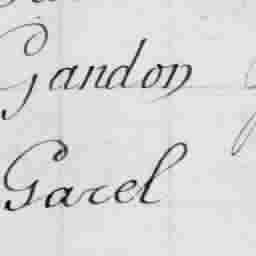 Gandon
Garel